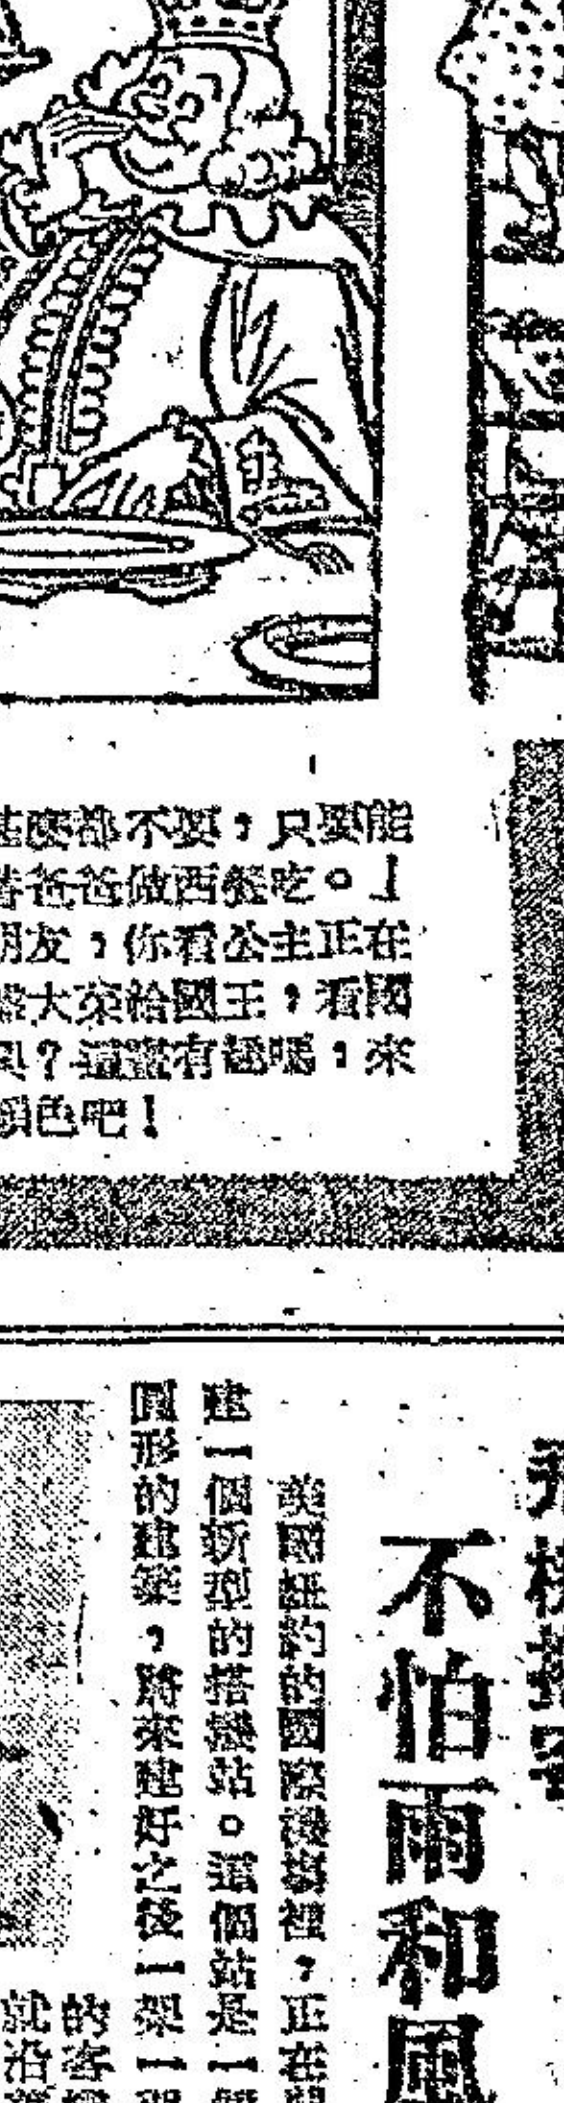 都不要，只要能
爸爸做西餐吃。」
朋友，你看公主正在
大菜給國王，看國
？這畫有趣嗎，來
顏色吧！
不怕雨和風
美國紐約的國際機場裡，正在
建一個新型的搭機站。這個站是一個
圓形的建築，將來建好之後一架一架
的客機
就沿